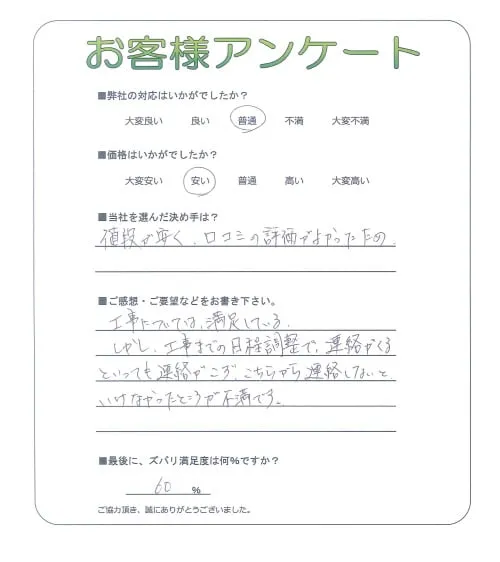 お客様アンケート
■弊社の対応はいかがでしたか？
大変良い 良い 普通 不満 大変不満
■価格はいかがでしたか？
大変安い 安い 普通 高い 大変高い
■当社を選んだ決め手は？
値段が安く、口コミの評価がよかったため、
■ご感想・ご要望などをお書き下さい。
工事については、満足している。
しかし、工事までの日程調整で、連絡がくる
といっても連絡がこず、こちらから連絡しないと
いけなかったところが不満です。
■最後に、ズバリ満足度は何%ですか？
60 %
ご協力頂き、誠にありがとうございました。